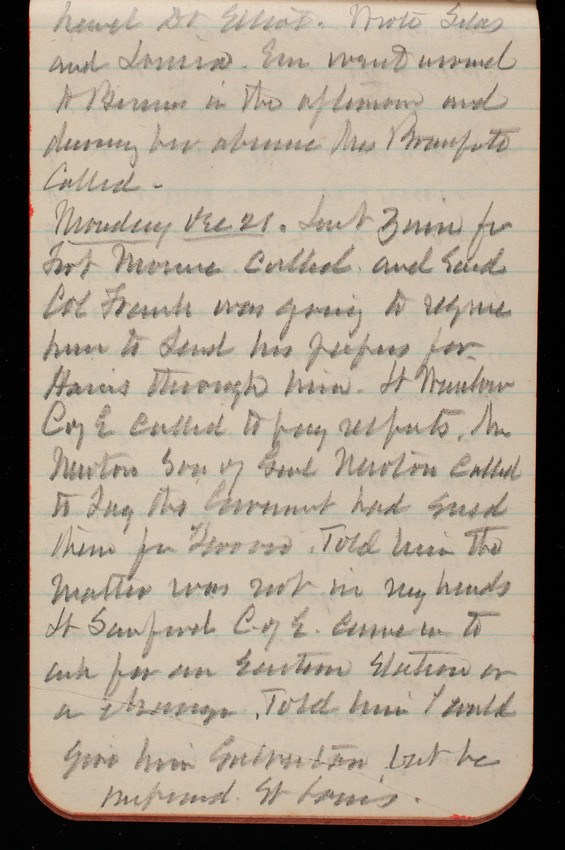 Dr Elliot. Wrote Silas
and Louisa. Em went around
to Bernies in the afternoon and
during her absence Mrs
Called.
Monday Dec 21. Lieut Zinn fr
Fort Monroe Called. and Said
Col Frank was going to require
him to Send his papers for
through him. Lt
C of E called to pay respects. Mr
Newton Son of Genl Newton Called
to Say the Government had Sued
them for . Told him the
matter was not in my hands
Lt Sanford C of E. Came in to
ask for an Eastern Station or
a change. Told him I could
Give him Galveston but he
prefered. St Louis.